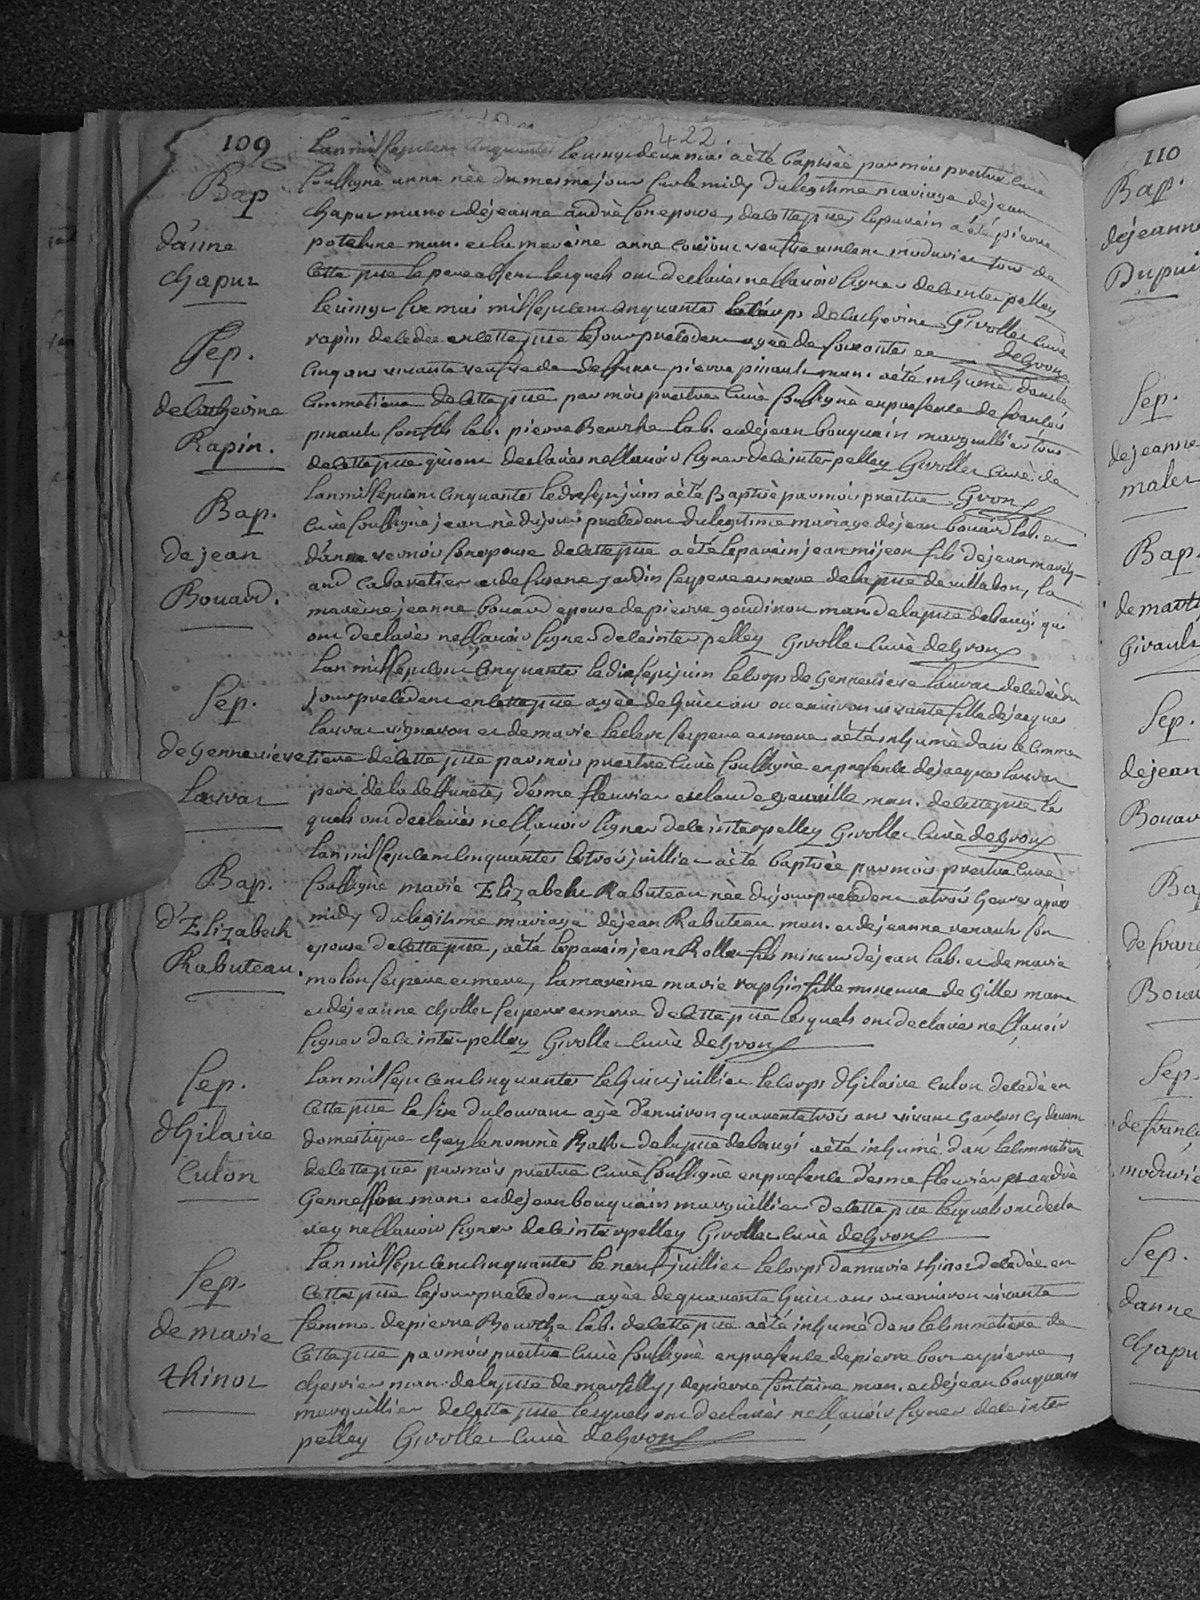 109
422
Bap
d'anne
chapuz
Lan mil sept cent cinquante le vingt deux mai a été baptisée par moi prestre curé
soussigné anne née du mesme jour sur le midy du legitime mariage de jean
chapuz manœ. et de jeanne andrè son epouse, de cette psse, le parain a été pierre
man. et la maraine anne veufve de
cette psse le pere absent lesquels ont declarés ne sçavoir signer de ce interpelley
Givollet curé
de Gron
Sep.
de cathérine
Rapin.
le vingt six mai mil sept cent cinquante le corps de cathérine
rapin decedée en cette psse le jour precedent agée de soixante et
cinq ans vivante veufve de deffunt pierre pinault man. a été inhumé dans le
cimmetiere de cette psse par moi prestre curé soussigné en presence de francois
pinault son fils lab. pierre Beurthe lab. et de jean bouquain marguillier tous
de cette psse qui ont declarés ne sçavoir signer de ce interpelley Givollet curé de
Gron
Bap.
de jean
Bouard.
Lan mil sept cent cinquante le dix sept juin a été Baptisé par moi prestre
curé soussigné jean né du jour precedent du legitime mariage de jean bouard lab. et
d'anne vernoir son epouse de cette psse a été le parain jean mijeon fils de jean
cabaretier et de susane jardin ses pere et mere de la psse de villabon, la
maraine jeanne bouard epouse de pierre goudinou man. de la psse de baugi qui
ont declarés ne sçavoir signer de ce interpelley Givollet curé de Gron
Sep.
de gennevieve
Lasvaz
Lan mil sept cent cinquante le dix sept juin le corps de gennevieve lasvaz decedée du
jour precedent en cette psse agée de huit ans ou environ vivante fille de jacques
lasvaz vigneron et de marie leclerc ses pere et mere a été inhumé dans le cimme
tiere de cette psse par moi prestre curé soussigné en presence de jacques lasvaz
pere de la deffunte, d'esme fleurier et claude man. de cette psse les
quels ont declarés ne sçavoir signer de ce interpelley Givollet curé de Gron
Bap.
d'Elizabeth
Rabuteau.
Lan mil sept cent cinquante le trois juillet a été baptisée par moi prestre curé
soussigné marie Elizabeth Rabuteau née du jour precedent a trois heures après
midy du legitime mariage de jean Rabuteau man. et de jeanne renault son
epouse de cette psse, a été le parain jean Rollet fils mineur de jean lab. et de marie
molon ses pere et mere, la maraine marie raphin fille mineure de Gilles man.
et de jeanne chollet ses pere et mere de cette psse lesquels ont declarés ne sçavoir
signer de ce interpelley Givollet curé de Gron
Sep.
d'hilaire
Culon
Lan mil sept cent cinquante le huit juillet le corps d'hilaire culon decedé en
cette psse le six du courant agé d'environ quarante trois ans vivant garson cy devant
domestique chez le nommé de la psse de baugi a été inhumé dans le cimmetiere
de cette psse par moi prestre curé soussigné en presence d'esme fleurier et andrè
Gennesson man. et de jean bouquain marguillier de cette psse lesquels ont decla
rey ne sçavoir signer de ce interpelley Givollet curé de Gron
Sep.
de marie
thinoz
Lan mil sept cent cinquante le neuf juillet le corps de marie thinoz decedée en
cette psse le jour precedent agée de quarante huit ans ou environ vivante
femme de pierre Beurthe lab. de cette psse a été inhumé dans le cimmetiere de
cette psse par moi prestre curé soussigné en presence de pierre
man. de la psse de marsilly, de pierre fontaine man. et de jean bouquain
marguillier de cette psse lesquels ont declarés ne sçavoir signer de ce inter
pelley Givollet curé de Gron
110
Bap.
de jeanne
Dupui
Sep.
de jeanne
malet
Bap.
Givault
Sep.
de jean
Bouar
Ba
Boua
Sep.
de franç
Sep.
d'anne
chapu